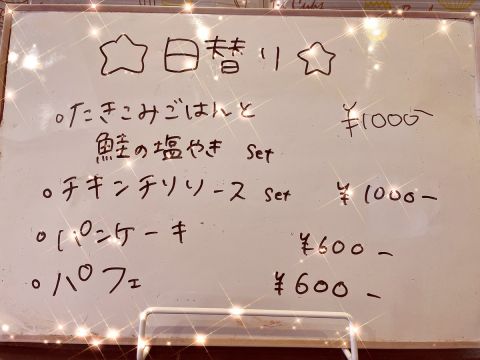 ☆日替り☆
○たきこみごはんと ¥1000-
鮭の塩やき set
○チキンチリソース set ¥1000-
○パンケーキ ¥600-
○パフェ ¥600-